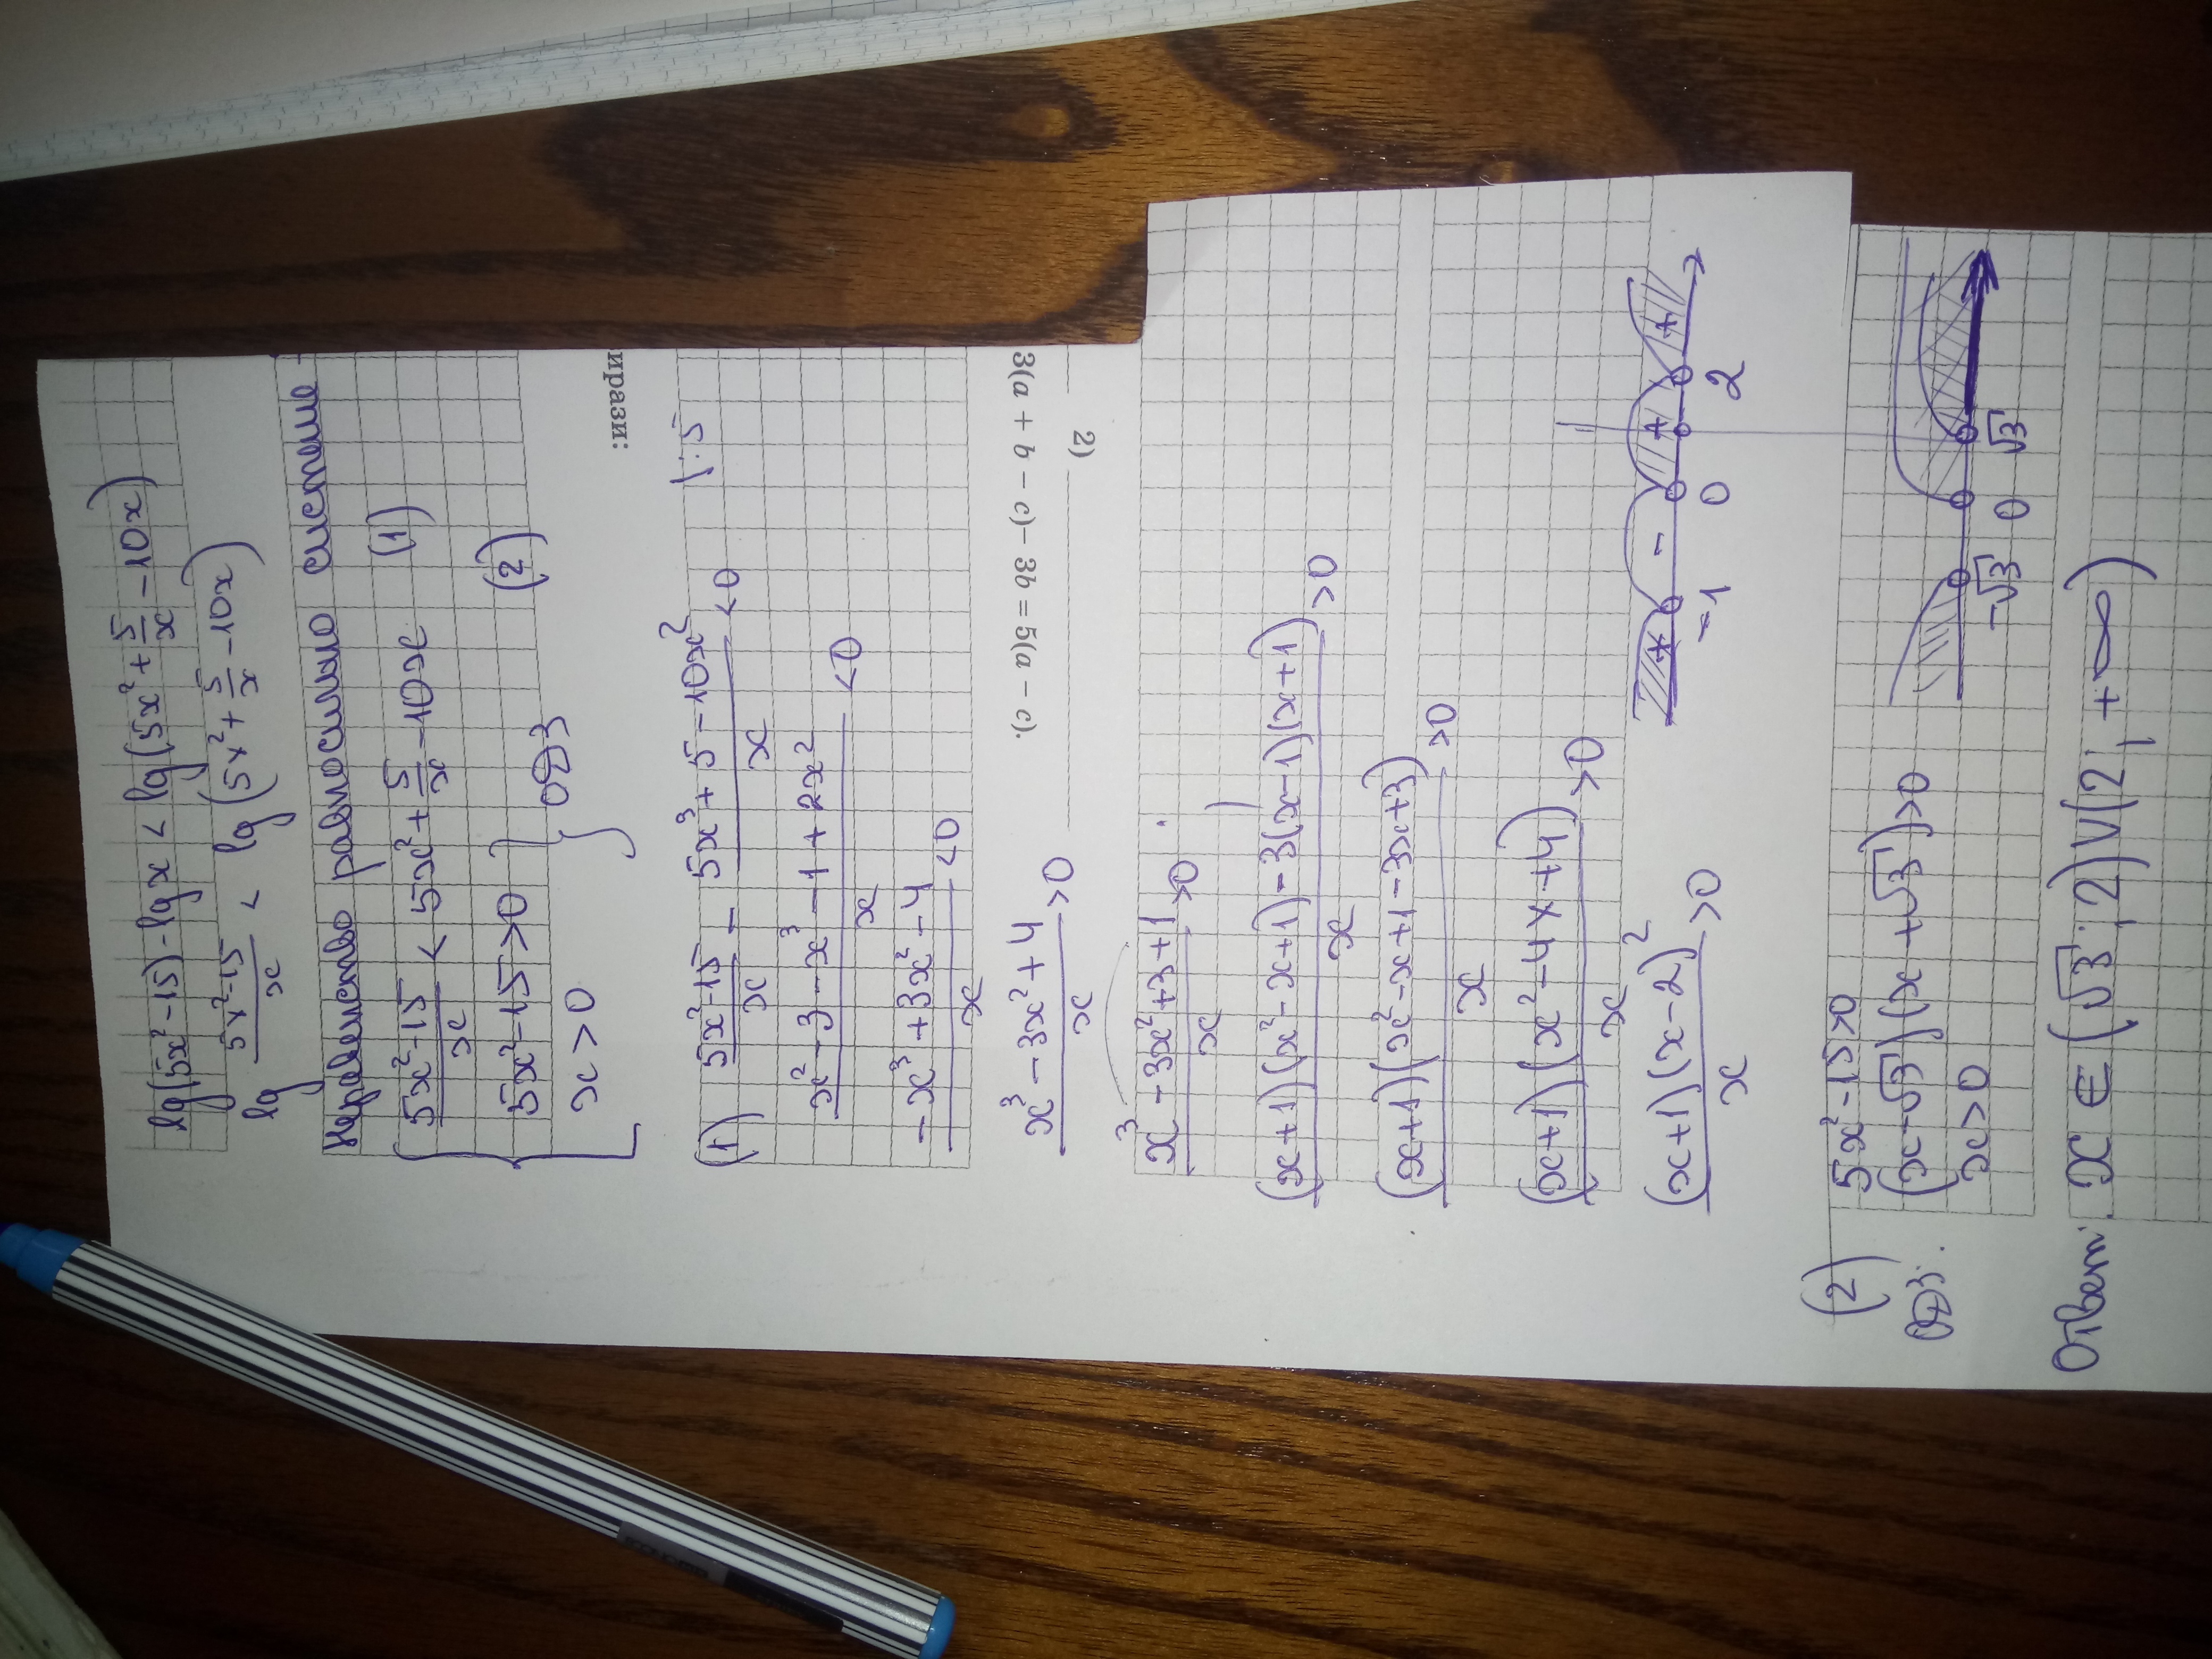 lg(5x²-15)-lg x < lg(5x²+5/x-10x)
lg (5x²-15)/x < lg(5x²+5/x-10x)
Неравенство равносильно системе
(5x²-15)/x < 5x²+5/x-10x (1)
5x²-15>0 (2)
x>0 } ОДЗ
ирази:
(1) (5x²-15)/x - (5x³+5-10x²)/x <0 |:5
(x²-3-x³-1+2x²)/x <0
(-x³+3x²-4)/x <0
2)
3(a + b − c) − 3b = 5(a − c).
(x³-3x²+4)/x >0
(x³-3x²+3+1)/x >0
((x+1)(x²-x+1)-3(x-1)(x+1))/x >0
((x+1)(x²-x+1-3x+3))/x >0
((x+1)(x²-4x+4))/x >0
((x+1)(x-2)²)/x >0
+ - + +
-1 0 2
(2) 5x²-15>0
ОДЗ: (x-√3)(x+√3)>0
x>0
-√3 0 √3
Ответ: x ∈ (√3; 2)∪(2; +∞)